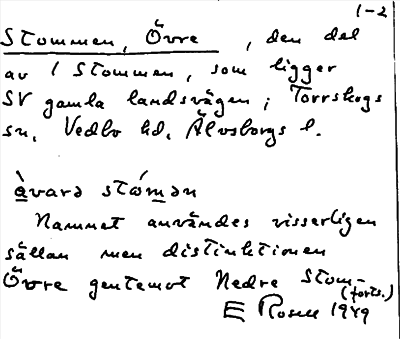 1-2
Stommen, Övre, den del
av 1 Stommen, som ligger
SV gamla landsvägen; Torrskogs
sn, Vedbo hd, Älvsborgs l.
àvarə stómən
Namnet användes visserligen
sällan men distinktionen
Övre gentemot Nedre Stom-
(forts.)
E Rosell 1949